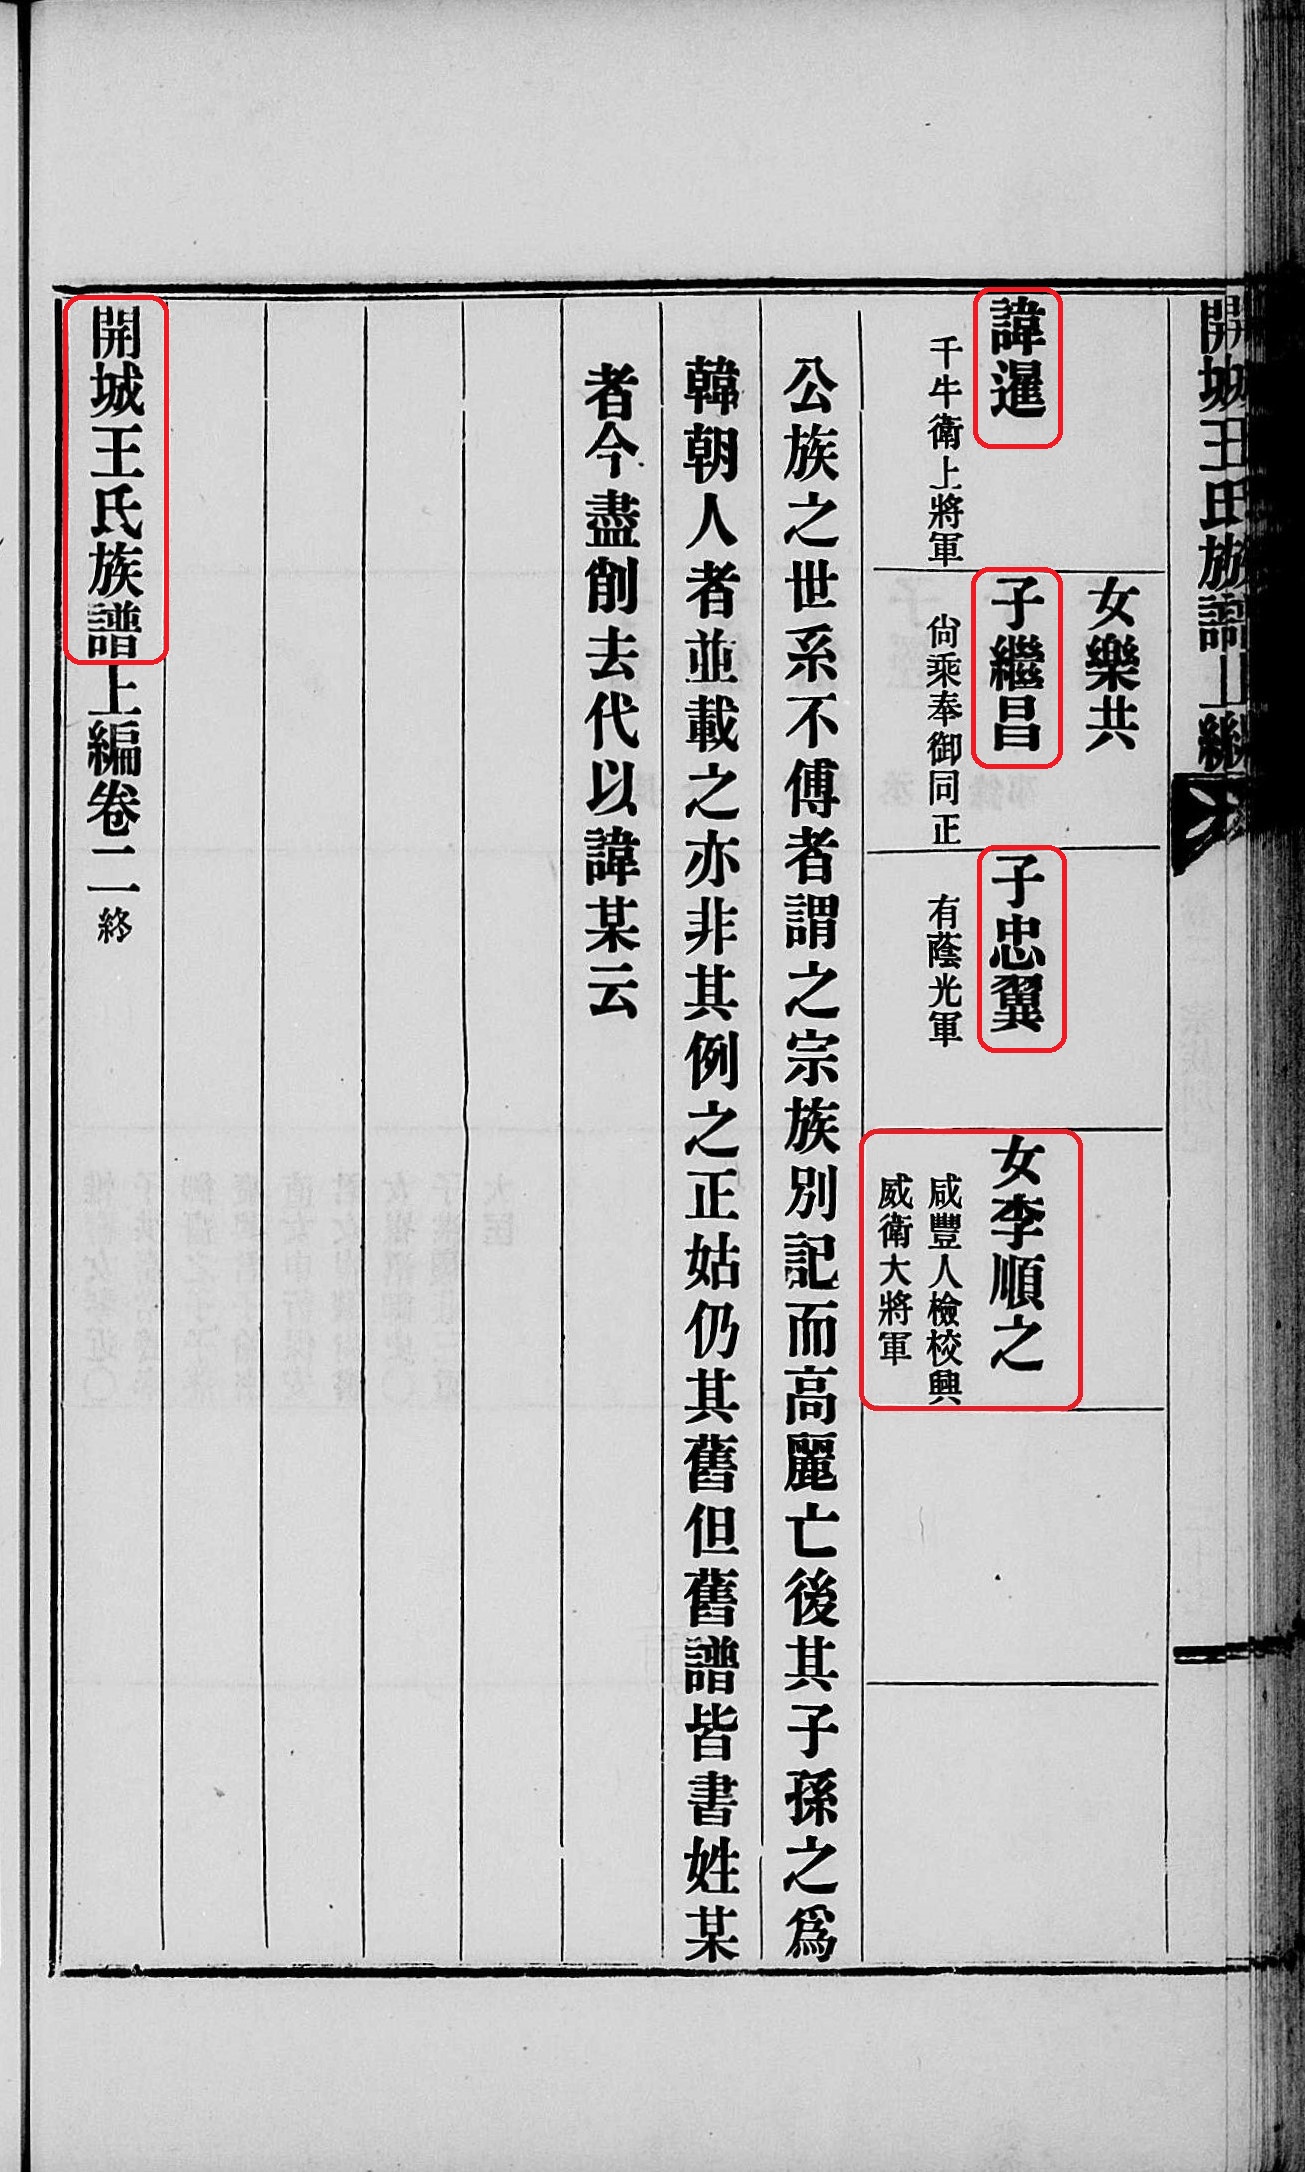 開城王氏族譜上編
女樂共
諱暹
千牛衛上將軍
子繼昌
尙乘奉御同正
子忠翼
有蔭光軍
女李順之
咸豐人檢校興
威衛大將軍
公族之世系不傅者謂之宗族別記而高麗亡後其子孫之爲
韓朝人者並載之亦非其例之正姑仍其舊但舊譜皆書姓某
者今盡削去代以諱某云
開城王氏族譜上編卷二終